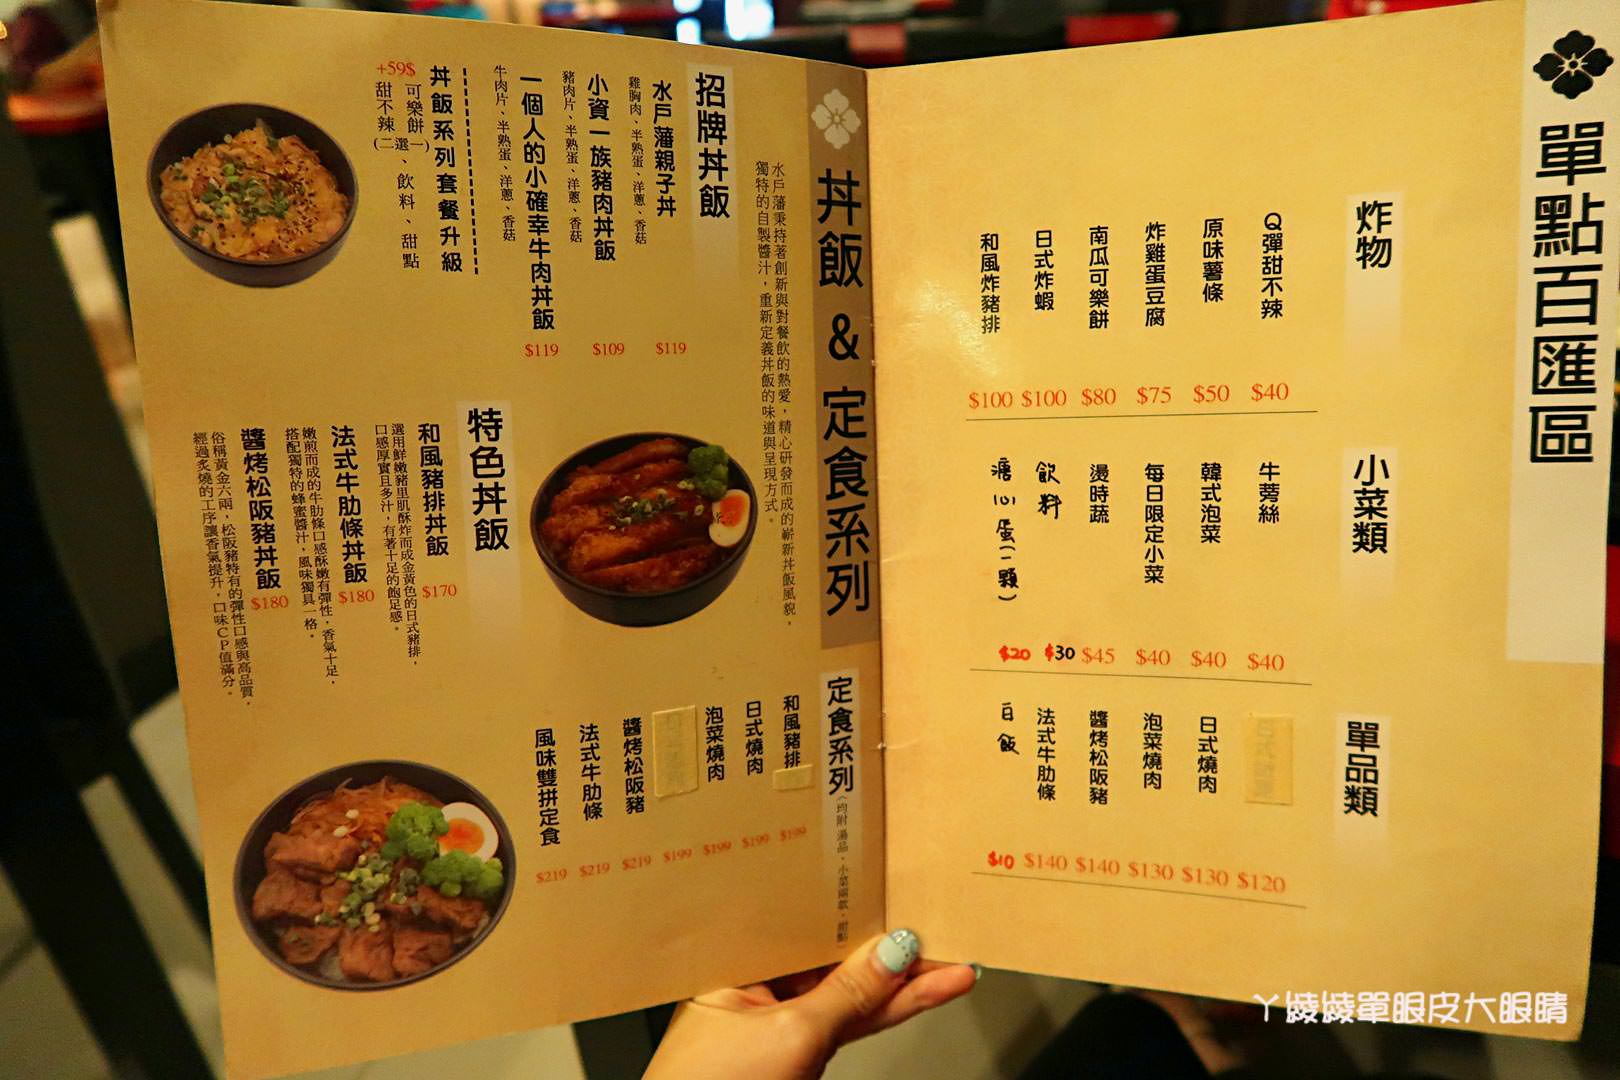 單點百匯區
炸物
Q彈甜不辣 $40
原味薯條 $50
炸雞蛋豆腐 $75
南瓜可樂餅 $80
日式炸蝦 $100
和風炸豬排 $100
小菜類
牛蒡絲 $40
韓式泡菜 $40
每日限定小菜 $40
燙時蔬 $45
飲料 $30
溏心蛋(一顆) $20
單品類
$120
日式燒肉 $130
泡菜燒肉 $130
醬烤松阪豬 $140
法式牛肋條 $140
白飯 $10
丼飯 & 定食系列
水戶藩秉持著創新與對餐飲的熱愛，精心研發而成的嶄新丼飯風貌，
獨特的自製醬汁，重新定義丼飯的味道與呈現方式。
招牌丼飯
水戶藩親子丼 $119
雞胸肉、半熟蛋、洋蔥、香菇
小資一族豬肉丼飯 $109
豬肉片、半熟蛋、洋蔥、香菇
一個人的小確幸牛肉丼飯 $119
牛肉片、半熟蛋、洋蔥、香菇
丼飯系列套餐升級
+59$ 可樂餅
甜不辣
(二選一)、飲料、甜點
特色丼飯
和風豬排丼飯 $170
選用鮮嫩豬里肌酥炸而成金黃色的日式豬排，
口感厚實且多汁，有著十足的飽足感。
法式牛肋條丼飯 $180
嫩煎而成的牛肋條口感酥嫩有彈性，香氣十足，
搭配獨特的蜂蜜醬汁，風味獨具一格。
醬烤松阪豬丼飯 $180
俗稱黃金六兩，松阪豬特有的彈性口感與高品質，
經過炙燒的工序讓香氣提升，口味CP值滿分。
定食系列(均附湯品、小菜兩款、甜點)
和風豬排 $199
日式燒肉 $199
泡菜燒肉 $199
$199
醬烤松阪豬 $219
法式牛肋條 $219
風味雙拼定食 $219
ㄚ綾綾單眼皮大眼睛